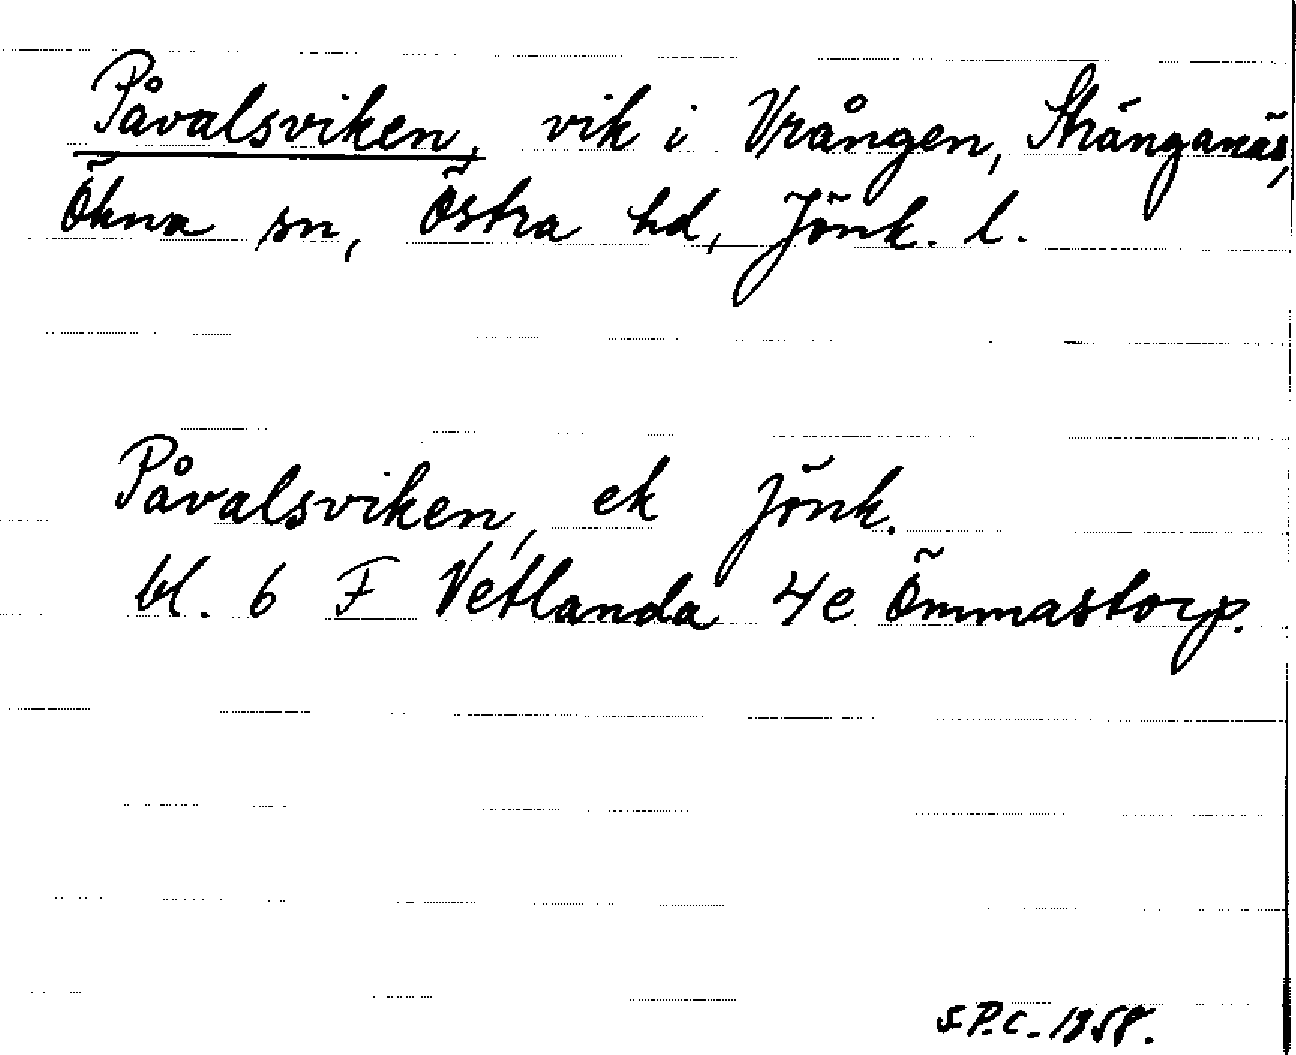 Påvalsviken, vik i Vrången, Stränganäs,
Ökna sn, Östra hd, Jönk. l.
Påvalsviken, ek Jönk.
bl. 6 F Vetlanda 4e Ömmastorp.
S.P.C. 1958.